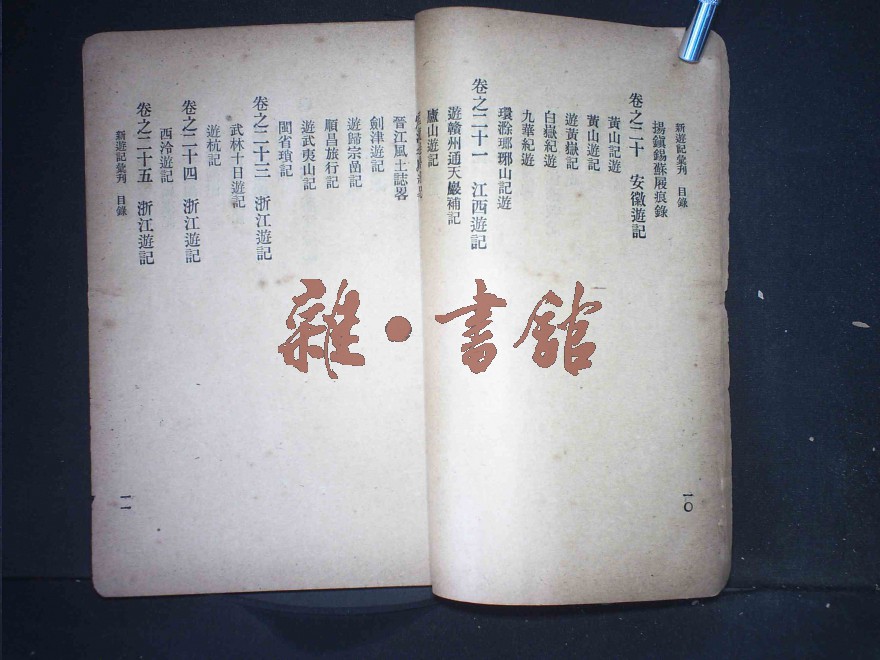 新遊記彙刋 目錄
揚鎭錫蘇屐痕錄
卷之二十 安徽遊記
黃山記遊
黃山遊記
遊黃嶽記
白嶽紀遊
九華紀遊
瓊滁瑯琊山記遊
卷之二十一 江西遊記
遊贛州通天巖補記
廬山遊記
一〇
晉江風土誌畧
劍津遊記
遊歸宗嵒記
順昌旅行記
遊武夷山記
閩省瑣記
卷之二十三 浙江遊記
武林十日遊記
遊杭記
卷之二十四 浙江遊記
西泠遊記
卷之二十五 浙江遊記
新遊記彙刋 目錄
一一
雜·書館